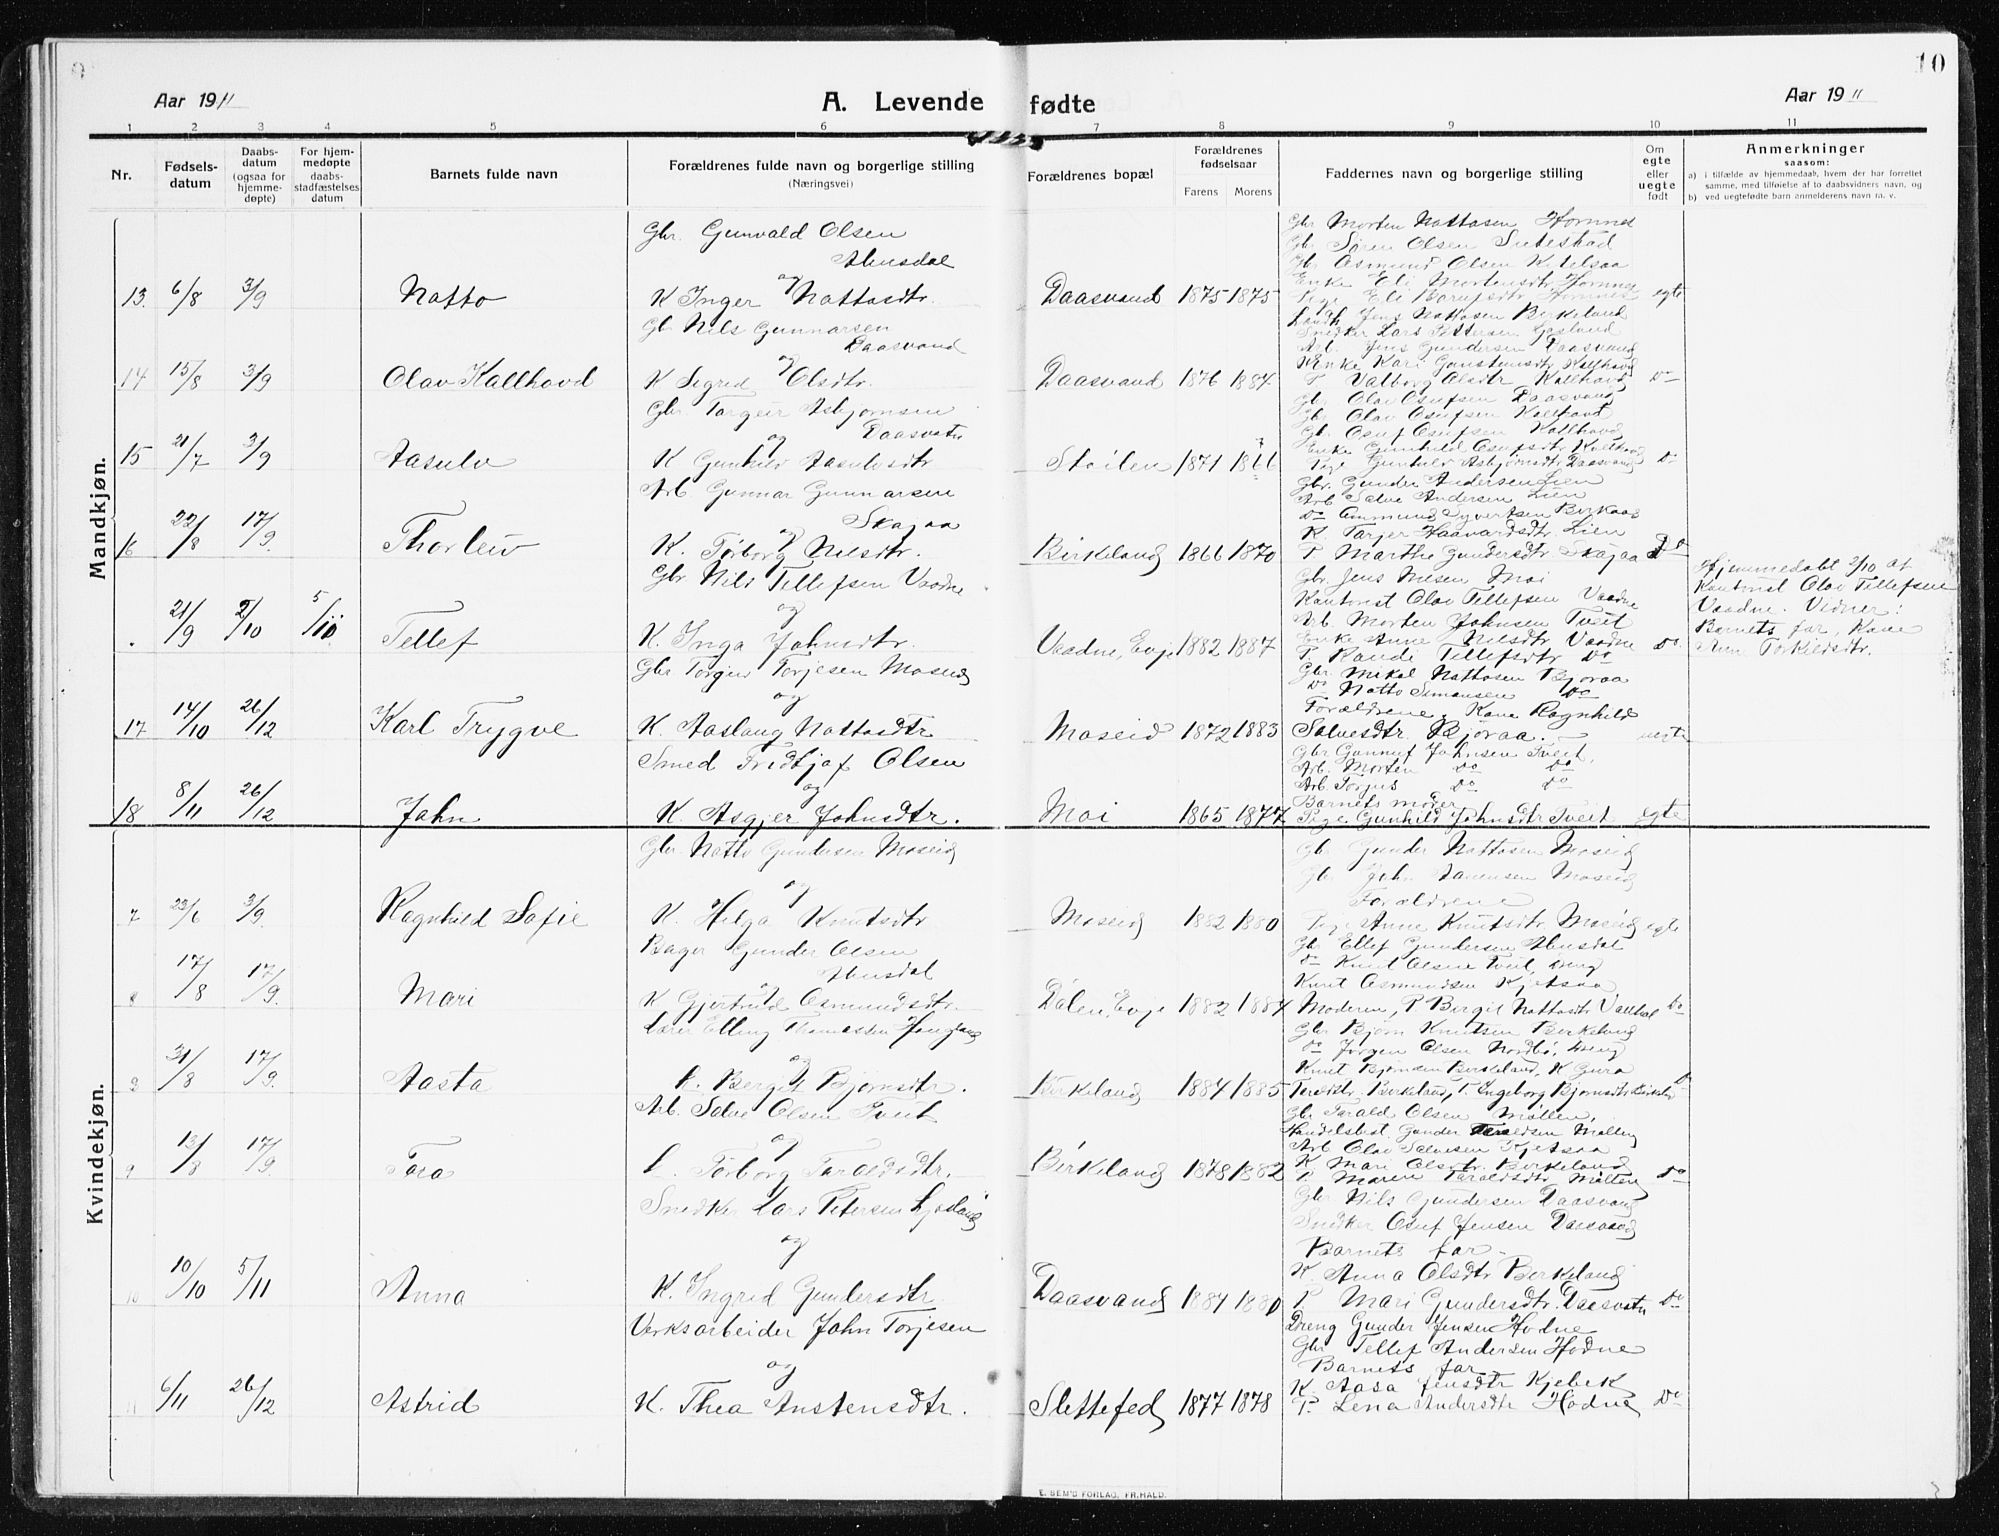 9
10
Aar 1911
A. Levende fødte
Aar 1911
1 2 3 4 5 6 7 8 9 10 11
Nr.
Fødsels-datum
Daabs-datum (ogsaa for hjemme-døpte)
For hjem-medøpte daabs-stadfæstelses datum
Barnets fulde navn
Forældrenes fulde navn og borgerlige stilling (Næringsvei)
Forældrenes bopæl
Forældrenes fødselsaar
Farens Morens
Faddernes navn og borgerlige stilling
Om egte eller uegte født
Anmerkninger
saasom:
a) i tilfælde av hjemmedaab, hvem der har forrettet samme, med tilføielse af to daabsvidners navn, og
b) ved uegtefødte barn anmelderens navn m. v.
Mandkjøn.
Gbr. Gunvald Olsen
og
13. 6/8 3/9 Natto K Inger Nattosdtr. Daasvand 1875 1875 egte
Gbr Morten Nattosen Hornnes
Gbr Søren Olsen
Gbr Osmund Olsen
Enke Eli Mortensdtr
Pige Eli
Jens Nattosen Birkeland
Snedker Lars Pettersen
Gb Nils Gunnarsen
Daasvand
og
14 15/8 3/9 Olav Kallhovd K Sigrid Olsdtr. Daasvand 1876 1884 Do
Arb. Jens Gundersen Daasvand
Enke Kari Gunstensdtr Kallhovd
P. Valborg Olsdtr Kallhovd
Gbr Olav Osufsen Daasvand
Gbr. Targeir Asbjørnsen
og
15 21/7 3/9 Aasulv K Gunhild Aasulvsdtr Støilen 1871 1866 Do
Gbr Olav Osufsen Kallhovd
Gb. Osuf Osufsen Kallhovd
Enke Gunhild Osufsdtr Kallhovd
Pige Gunhild Asbjørnsdtr Daasvand
Arb Gunnar Gunnarsen
Skajaa
og
16 22/8 17/9. Thorleiv K. Tørborg Nilsdtr. Birkeland 1866 1870 Do
Gbr. Gunder Andersen Lien
Arb Salve Andersen Lien
Do Ommund Syvertsen Birkaas
K Tarjer Haavardsdtr. Lien
P. Marthe Gundersdtr Skajaa
Gbr Nils Tellefsen Vaadne
og
21/9 2/10 5/10. Tellef K. Inga Johnsdtr. Vaadne, Evje 1882 1887 Do
Gbr. Jens Moi
Kantonist Olav Tellefsen Vaadne
Arb. Morten Johnsen Tveit
Enke Anne Nilsdtr Vaadne
P. Tellefsdtr Do
Hjemmedøbt 2/10 af
Kantonist Olav Tellefsen
Vaadne. Vidner:
Barnets far, Kone
Torkildsdtr.
Gbr Torgius Torjesen Moseid
og
17 14/10 26/12 Karl Trygve K. Aaslaug Nattosdtr Moseid 1872 1883 uegte
Gbr. Mikal Nattosen Bjoraa
Do Natto Simonsen Do
Forældrene, Kone Ragnhild
Salvesdtr Bjoraa.
Smed Fridtjof Olsen
og
18 8/11 26/12 John K. Asgjer Johnsdtr. Moi 1865 1877 egte
Gbr Gunnuf Johnsen Tveit,
Arb. Morten Do Do
Arb. Torjus Do Do
Barnets moder
Pige Gunhild Johnsdtr Tveit
Kvindekjøn.
Gbr Natto Gundersen Moseid
og
7 23/6 3/9. Ragnhild Sofie K. Helga Knutsdtr Moseid 1882 1880 egte
Gb. Gunder Nattosen Moseid
Gbr John Moseid
Forældrene
Pige Anne Knutsdtr Moseid
Bager Gunder Olsen
og
8 17/8 17/9. Mari K Gjertrud Osmundsdtr. Dølen, Evje 1882 1884 Do
Gbr Ellef Gundersen
Do Knut Olsen Tveit, Dreng
Knut Osmundsen Kjetsaa
Moderen, P. Bergit Nattosdtr
Lærer Elling Thomassen
og
31/8 17/9. Aasta K. Bergit Bjørnsdtr. Birkeland 1884 1885 Do
Gbr Bjørn Knutsen Birkeland
Do Jørgen Olsen Nordbø, Dreng
Knut Bjørnsen Birkeland, K Gura
Birkeland, P. Ingeborg Bjørnsdtr
Arb. Salve Olsen Tveit
og
9 13/8 17/9. Tora K. Tørborg Taraldsdtr. Birkeland 1878 1882 Do
Gbr Tarald Olsen Mølten,
Handelsbest. Gunder Taraldsen Mølten
Arb Olav Salvesen Kjetsaa
K. Mari Olsdtr. Birkeland
P. Maren Taraldsdtr Mølten
Snedker Lars Petersen
og
10 10/10 5/11 Anna K. Ingrid Gundersdtr. Daasvand 1884 1880 Do
Gbr Nils Gundersen Daasvand
Snedker Osuf Jensen Daasvand
Barnets far
K. Anna Olsdtr Birkeland
P. Mari Gundersdtr.
Verksarbeider John Torjesen
og
11 6/11 26/12 Astrid K. Thea Anstensdtr. Slettefed 1877 1878 Do
Dreng Gunder Jensen Hodne
Gbr Tellef Andersen Hodne
Barnets far
K. Aasa Jensdtr Kjebek
P. Lena Andersdtr Hodne
E. SEM'S FORLAG, FR.HALD.